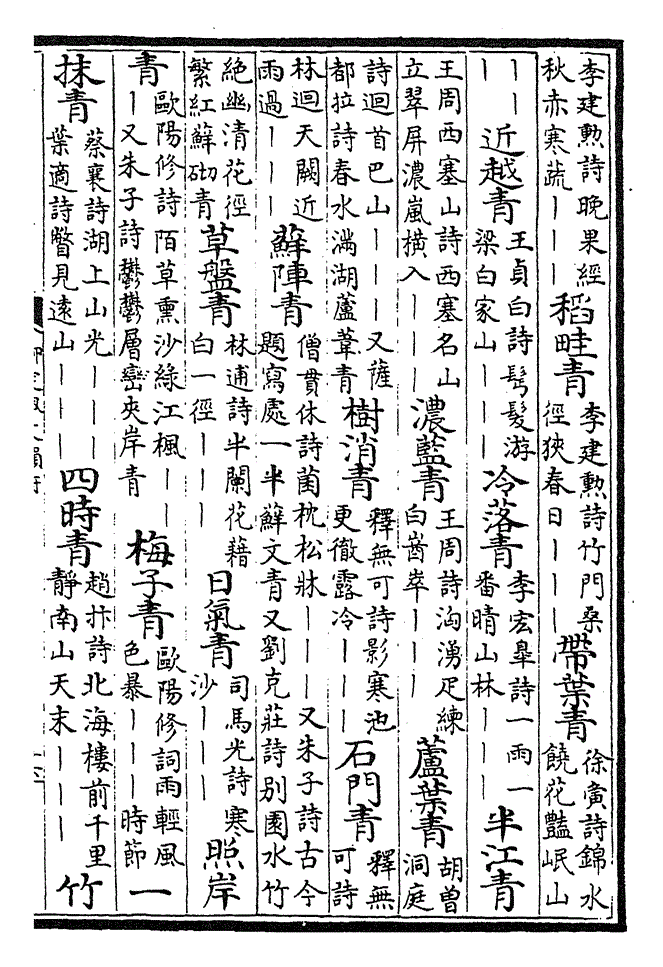 李建勲詩晚果經
秋赤寒蔬｜｜｜
稻畦青
李建勲詩竹門桑
徑狹春日｜｜｜
帶葉青
徐夤詩錦水
饒花豔岷山
｜｜
｜
近越青
王貞白詩髩髮游
梁白家山｜｜｜
冷落青
李宏皋詩一雨一
番晴山林｜｜｜
半江青
王周西塞山詩西塞名山
立翠屏濃嵐橫入｜｜｜
濃藍青
王周詩洶湧疋練
白崷崒｜｜｜
蘆葉青
胡曽
洞庭
詩迴首巴山｜｜｜又薩
都拉詩春水滿湖蘆葦青
樹消青
釋無可詩影寒池
更徹露冷｜｜｜
石門青
釋無
可詩
林迴天闕近
雨過｜｜｜
蘚陣青
僧貫休詩菌枕松牀｜｜｜又朱子詩古今
題寫處一半蘚文青又劉克莊詩别園水竹
絶幽清花徑
繁紅蘚砌青
草盤青
林逋詩半闌花藉
白一徑｜｜｜
日氣青
司馬光詩寒
沙｜｜｜
照岸
青
歐陽修詩陌草熏沙綠江楓｜｜
｜又朱子詩鬱鬱層巒夾岸青
梅子青
歐陽修詞雨輕風
色暴｜｜｜時節
一
抹青
蔡襄詩湖上山光｜｜｜
葉適詩瞥見遠山｜｜｜
四時青
趙抃詩北海樓前千里
靜南山天末｜｜｜
竹